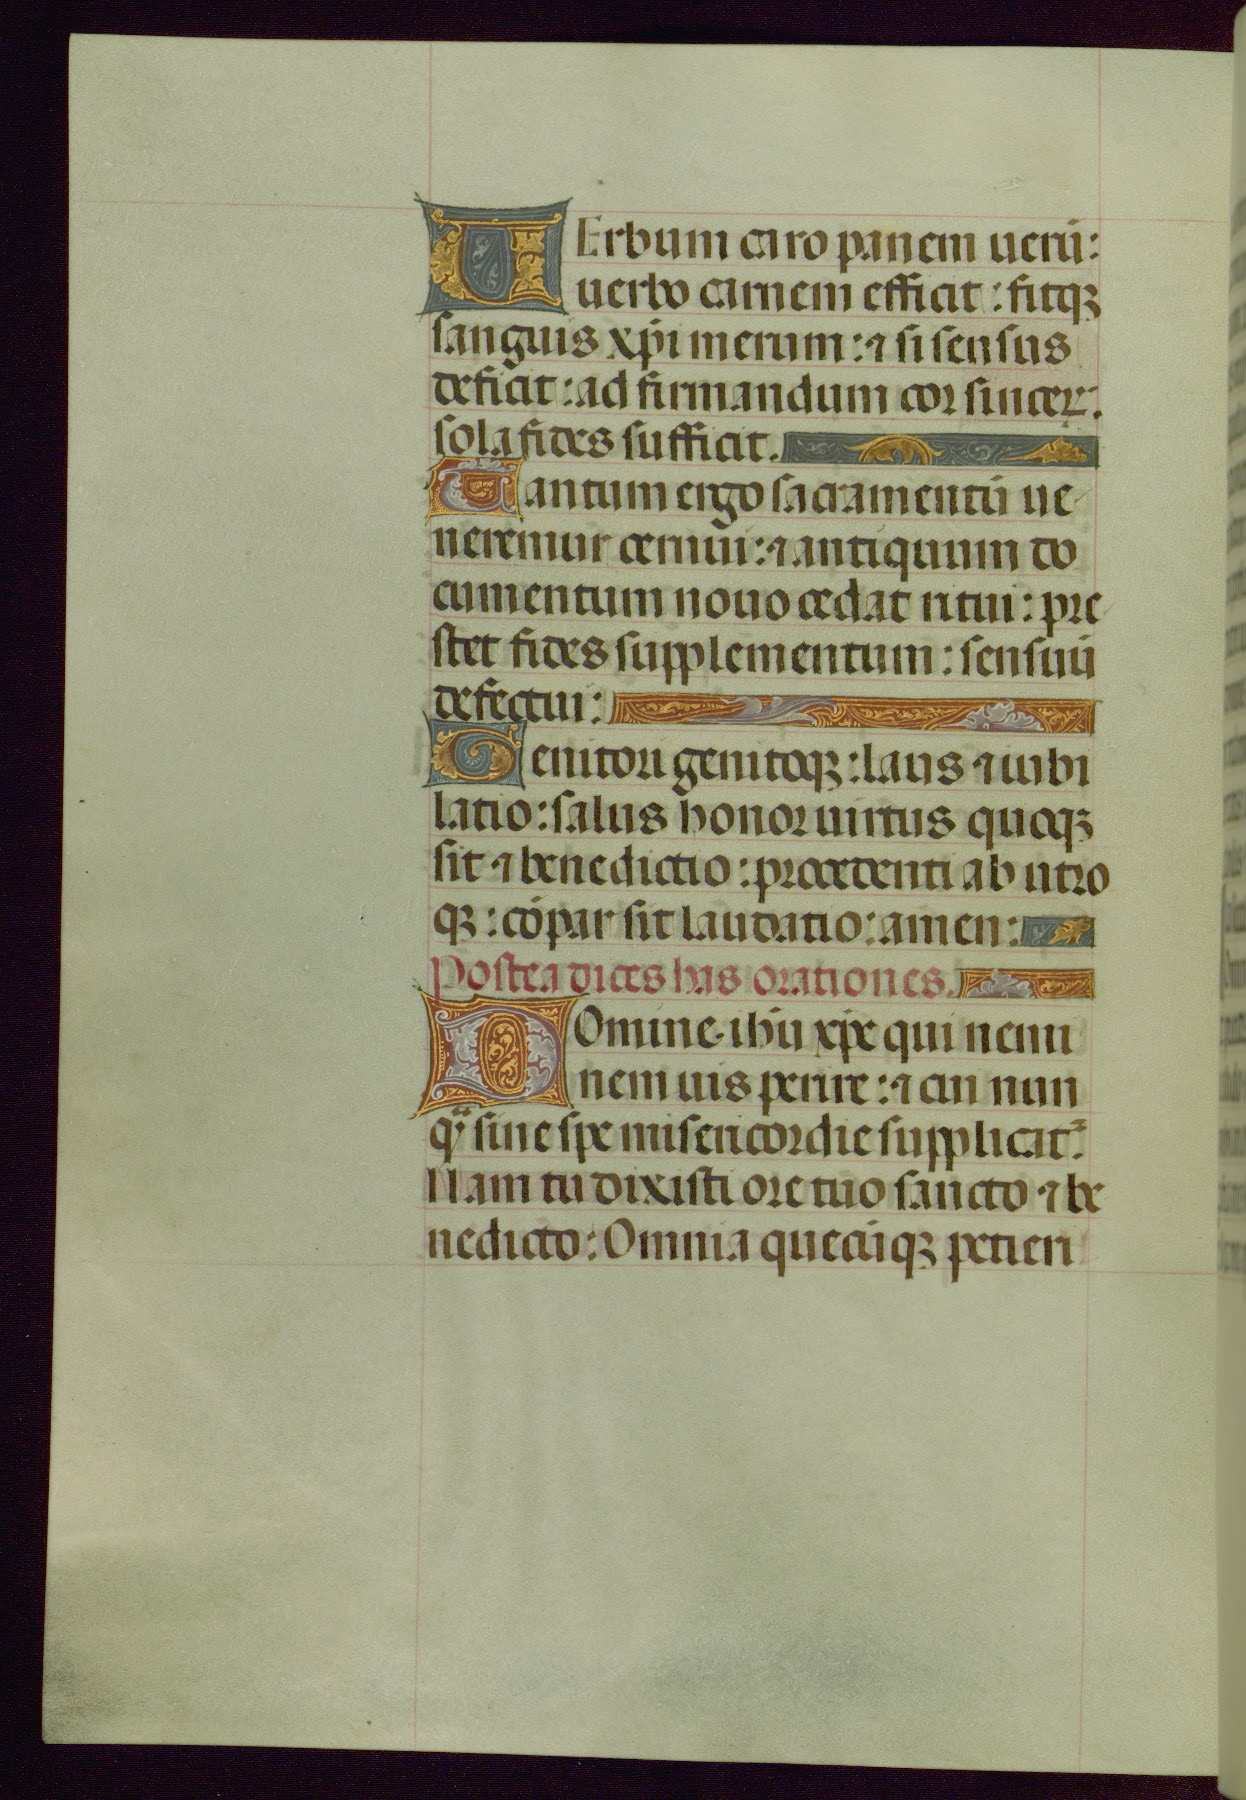 UErbum caro panem uerũ:
uerbo carnem efficit: fitqȝ
sanguis xp̃i merum: ⁊ si sensus
deficit: ad firmandum cor sinceꝝ.
sola fides sufficit.
Tantum ergo sacramentũ ue
neremur cernui: ⁊ antiquum do
cumentum nouo cedat ritui: pre
stet fides supplementum: sensuũ
defectui:
Genitori genitoqȝ: laus ⁊ iubi
latio: salus honor uirtus quoqȝ
sit ⁊ benedictio: procedenti ab utro
qȝ: cõpar sit laudatio: amen:
Postea dices has orationes.
DOmine ihũ xp̃e qui nemi
nem uis perire: ⁊ cui nun
qᷓ sine spe misericordie supplicat᷑.
Nam tu dixisti ore tuo sancto ⁊ be
nedicto: Omnia quecũqȝ petieri